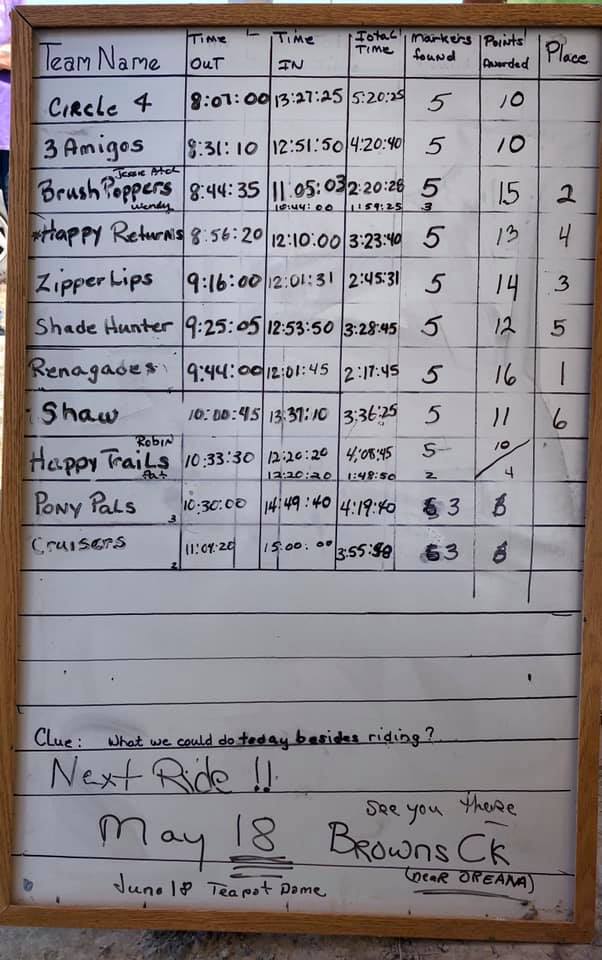 Team Name | Time OUT | Time IN | Total Time | Markers found | Points Awarded | Place
Circle 4 | 8:07:00 | 13:27:25 | 5:20:25 | 5 | 10
3 Amigos | 8:31:10 | 12:51:50 | 4:20:40 | 5 | 10
Brush Poppers | 8:44:35 | 11:05:03 | 2:20:28 | 5 | 15 | 2
Wendy | 10:44:00 | 1:59:25 | 3
*Happy Returns | 8:56:20 | 12:10:00 | 3:23:40 | 5 | 13 | 4
Zipper Lips | 9:16:00 | 12:01:31 | 2:45:31 | 5 | 14 | 3
Shade Hunter | 9:25:05 | 12:53:50 | 3:28:45 | 5 | 12 | 5
Renagades | 9:44:00 | 12:01:45 | 2:17:45 | 5 | 16 | 1
Shaw | 10:00:45 | 13:37:10 | 3:36:25 | 5 | 11 | 6
Robin
Happy Trails | 10:33:30 | 12:20:20 | 4:08:45 | 5 | 10
Pat | 12:20:20 | 1:48:50 | 2 | 4
Pony Pals 3 | 10:30:00 | 14:49:40 | 4:19:40 | 3
Cruisers 2 | 11:04:20 | 15:00:00 | 3:55:50 | 3
Clue: What we could do today besides riding?
Next Ride !!
See you there
May 18 Browns Ck
(near OREANA)
June 18 Teapot Dome